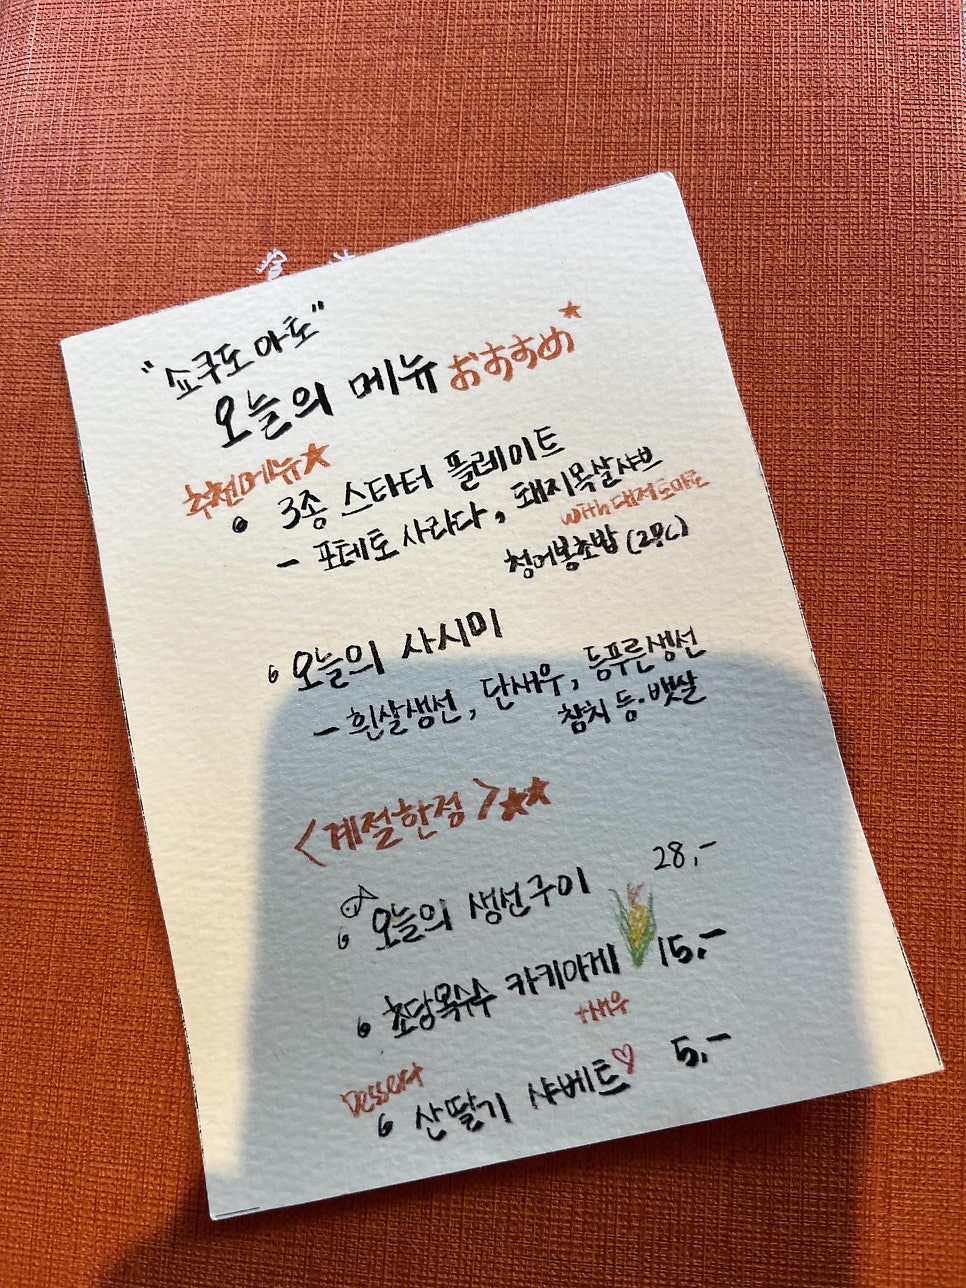 "쇼쿠도 아토"
오늘의 메뉴 おすすめ
추천메뉴
3종 스타터 플레이트
- 포테토 사라다, 돼지목살샤브
with 대저토마토
청어봉초밥 (2pc)
오늘의 사시미
- 흰살생선, 단새우, 등푸른생선
참치 등·뱃살
<계절한정>
오늘의 생선구이 28,-
초당옥수수 카키아게 15,-
+새우
Dessert
산딸기 샤베트♡ 5,-